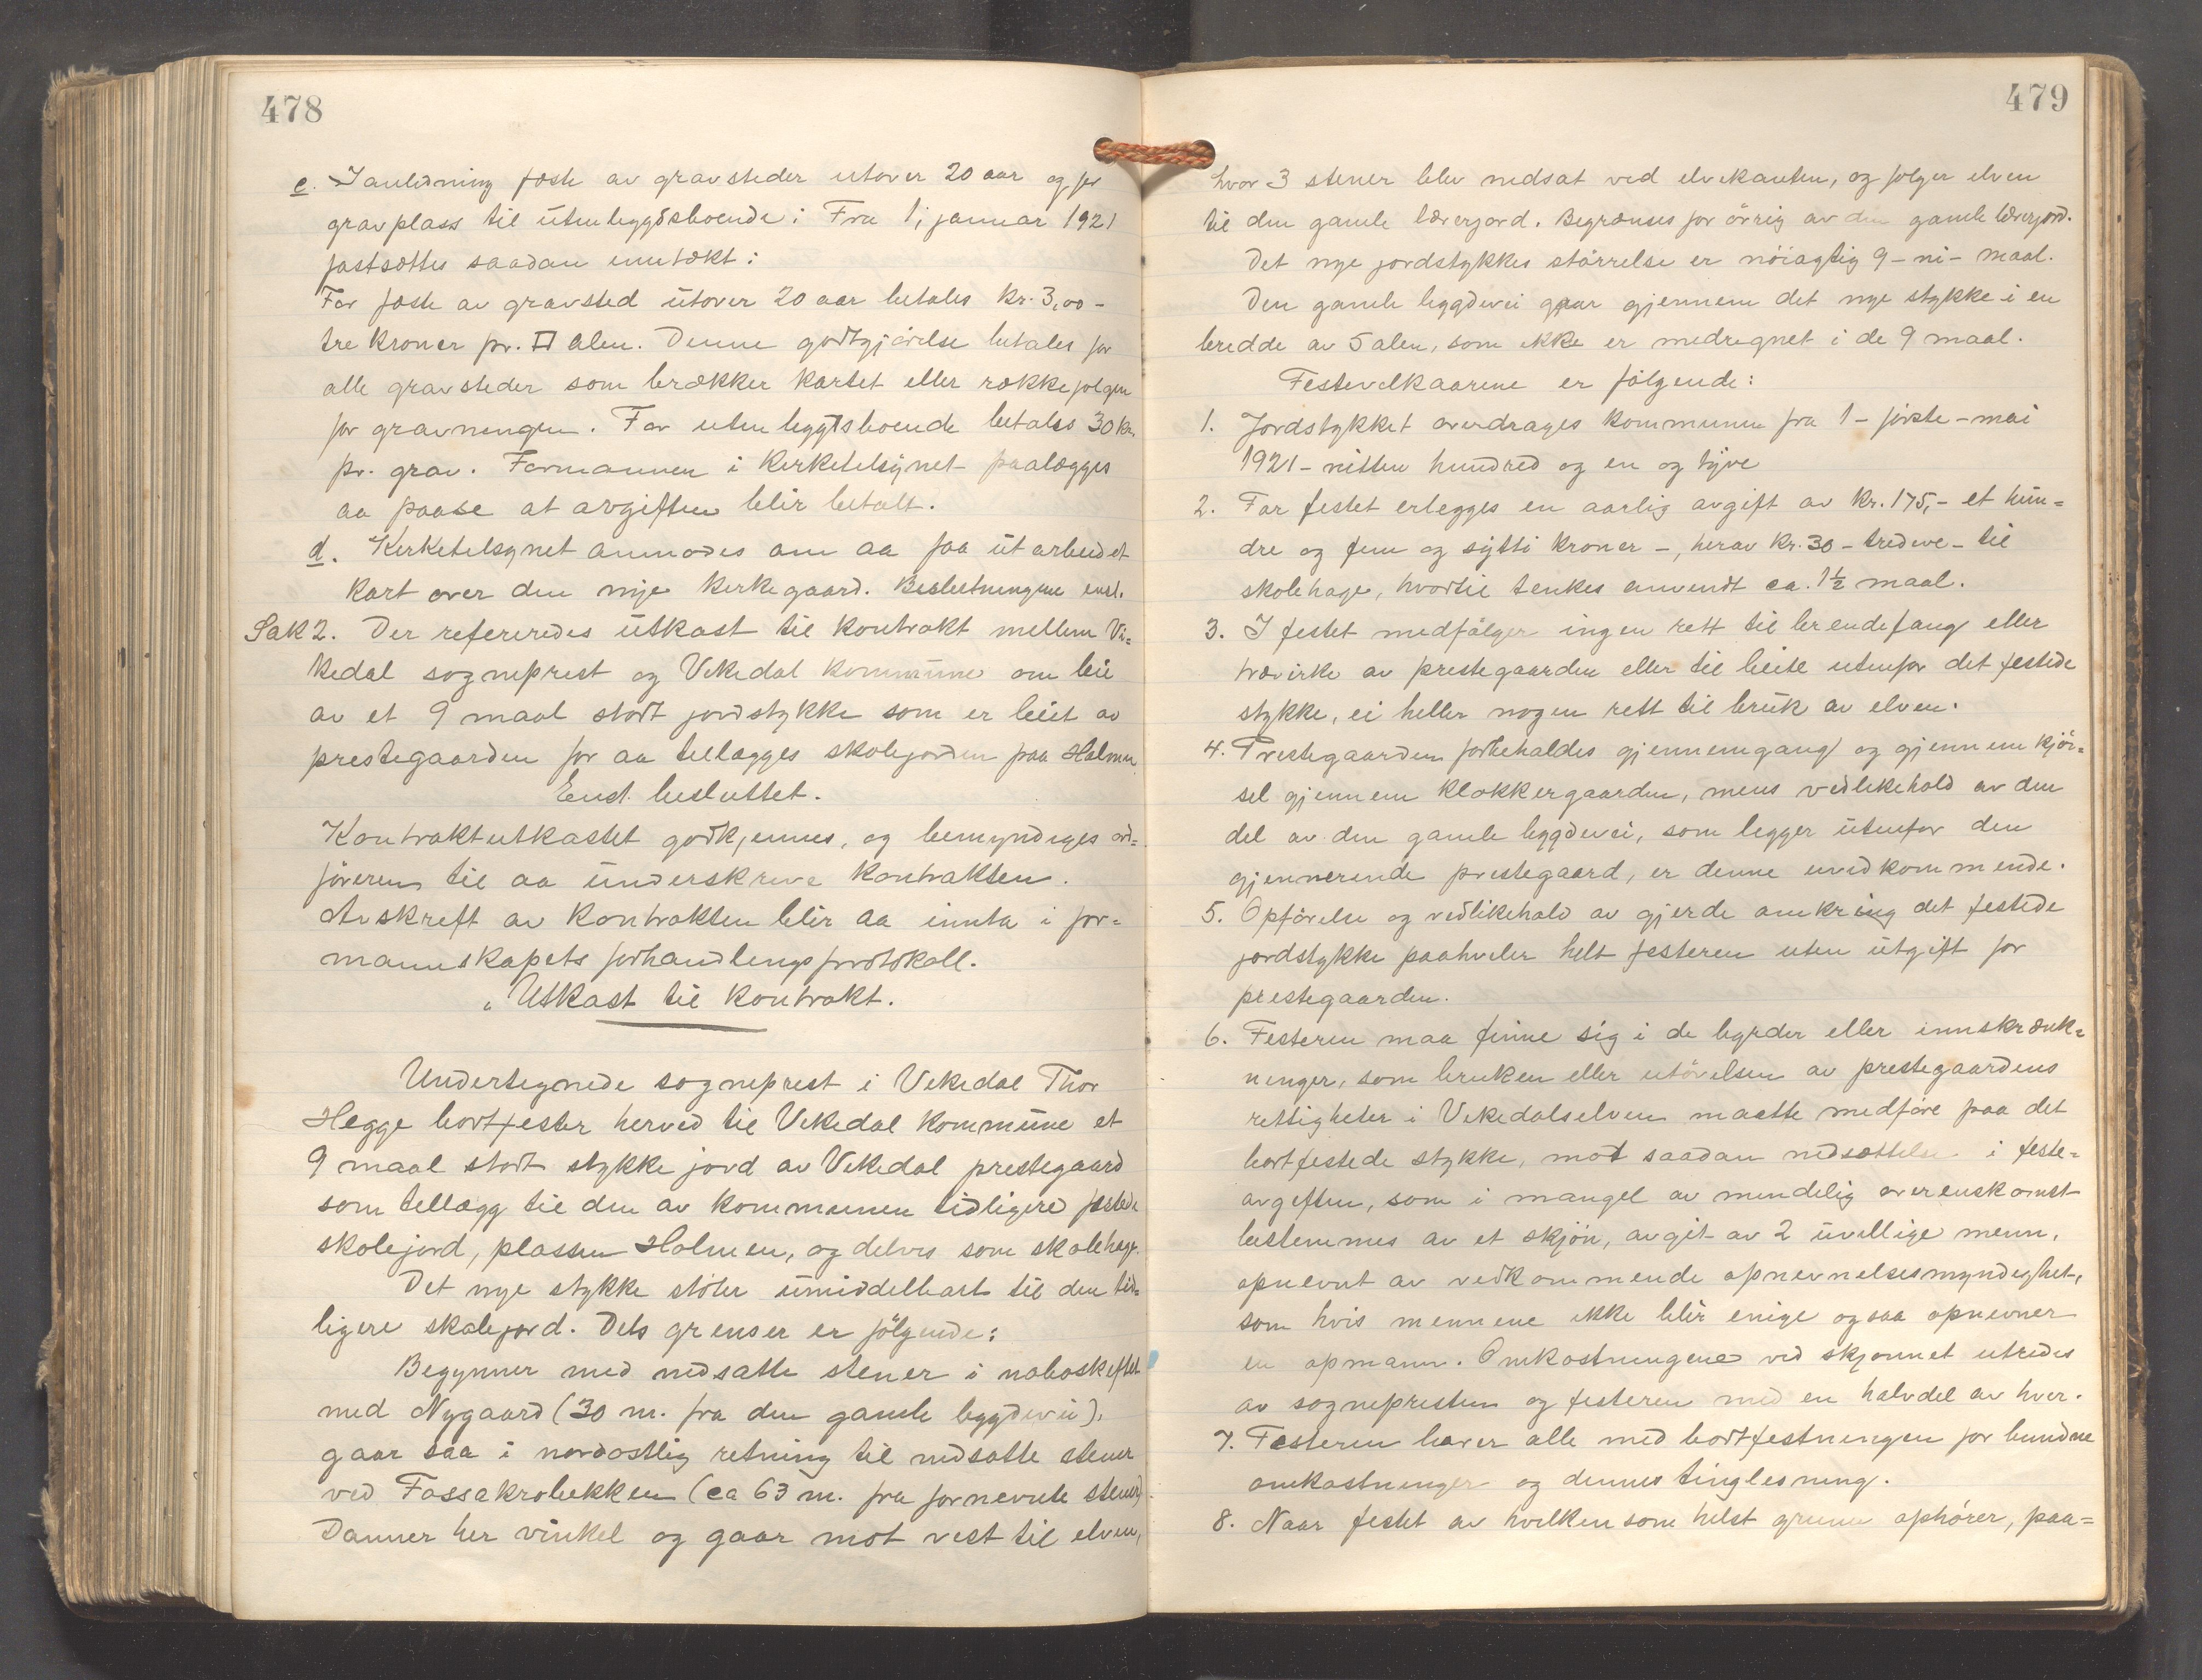 478
c. I anledning fæste av gravsteder utover 20 aar og for
gravplass til utenbygdsboende: Fra 1; januar 1921
fastsættes saadan inntækt:
For fæste av gravsted utover 20 aar betales kr. 3,00 -
tre kroner pr. □ alen. Denne godtgjörelse betales for
alle gravsteder som brækker kartet eller rækkefølgen
for gravningen. For utenbygdsboende betales 30 kr.
pr. grav. Formannen i kirketilsynet paalægges
aa paase at avgiften blir betalt.
d. Kirketilsynet anmodes om aa faa utarbeidet
kart over den nye kirkegaard. Beslutningene enst.
Sak 2. Der refereredes utkast til kontrakt mellem Vi=
kedal sogneprest og Vikedal kommune om leie
av et 9 maal stort jordstykke som er leiet av
prestegaarden for aa tillægges skolejorden paa Holmen.
Enst. besluttet.
Kontraktutkastet godkjennes, og bemyndiges ord=
föreren til aa underskrive kontrakten.
Avskrift av kontrakten blir aa innta i for=
mannskapets forhandlingsprotokoll.
"Utkast til kontrakt.
Undertegnede sogneprest i Vikedal Thor
Hegge bortfester herved til Vikedal kommune et
9 maal stort stykke jord av Vikedal prestegaard
som tillægg til den av kommunen tidligere festede
skolejord, plassen Holmen, og delvis som skolehage.
Det nye stykke stöter umiddelbart til den tid=
ligere skolejord. Dets grenser er fölgende:
Begynner med nedsatte stener i naboskiftet
med Nygaard (30 m. fra den gamle bygdevei),
gaar saa i nordostlig retning til nedsatte stener
ved Fossakrobekken (ca 63 m. fra fornevnte stener)
Danner her vinkel og gaar mot vest til elven,
479
hvor 3 stener blev nedsat ved elvekanten, og følger elven
til den gamle lærerjord. Begrænses for övrig av den gamle lærerjord.
Det nye jordstykkes störrelse er nöiagtig 9 - ni - maal.
Den gamle bygdevei gaar gjennem det nye stykke i en
bredde av 5 alen, som ikke er medregnet i de 9 maal.
Festevilkaarene er fölgende:
1. Jordstykket overdrages kommunen fra 1 - förste - mai
1921 - nitten hundred og en og tyve
2. For festet erlegges en aarlig avgift av kr. 175,- et hun=
dre og fem og sytti kroner -, herav kr. 30 - tredve - til
skolehage, hvortil tenkes anvendt ca. 1½ maal.
3. I festet medfölger ingen rett til brendefang eller
trævirke av prestegaarden eller til beite utenfor det festede
stykke, ei heller nogen rett til bruk av elven.
4. Prestegaarden forbeholdes gjennemgang og gjennemkjör=
sel gjennem klokkergaarden, mens vedlikehold av den
del av den gamle bygdevei, som ligger utenfor den
gjennerende prestegaard, er denne uvedkommende.
5. Opförelse og vedlikehold av gjerde omkring det festede
jordstykke paahviler helt festeren uten utgift for
prestegaarden.
6. Festeren maa finne sig i de byrder eller innskrænk=
ninger, som bruken eller utövelsen av prestegaardens
rettigheter i Vikedalselven maatte medföre paa det
bortfestede stykke, mot saadan nedsættelse i feste=
avgiften, som i mangel av mindelig overenskomst
bestemmes av et skjön, avgit av 2 uvillige menn,
opnevnt av vedkommende opnevnelsesmyndighet,
som hvis mennene ikke blir enige ogsaa opnevner
en opmann. Omkostningene ved skjønnet utredes
av sognepresten og festeren med en halvdel av hver.
7. Festeren bærer alle med bortfestningen forbundne
omkostninger og dennes tinglesning.
8. Naar festet av hvilken som helst grunn ophører, paa=